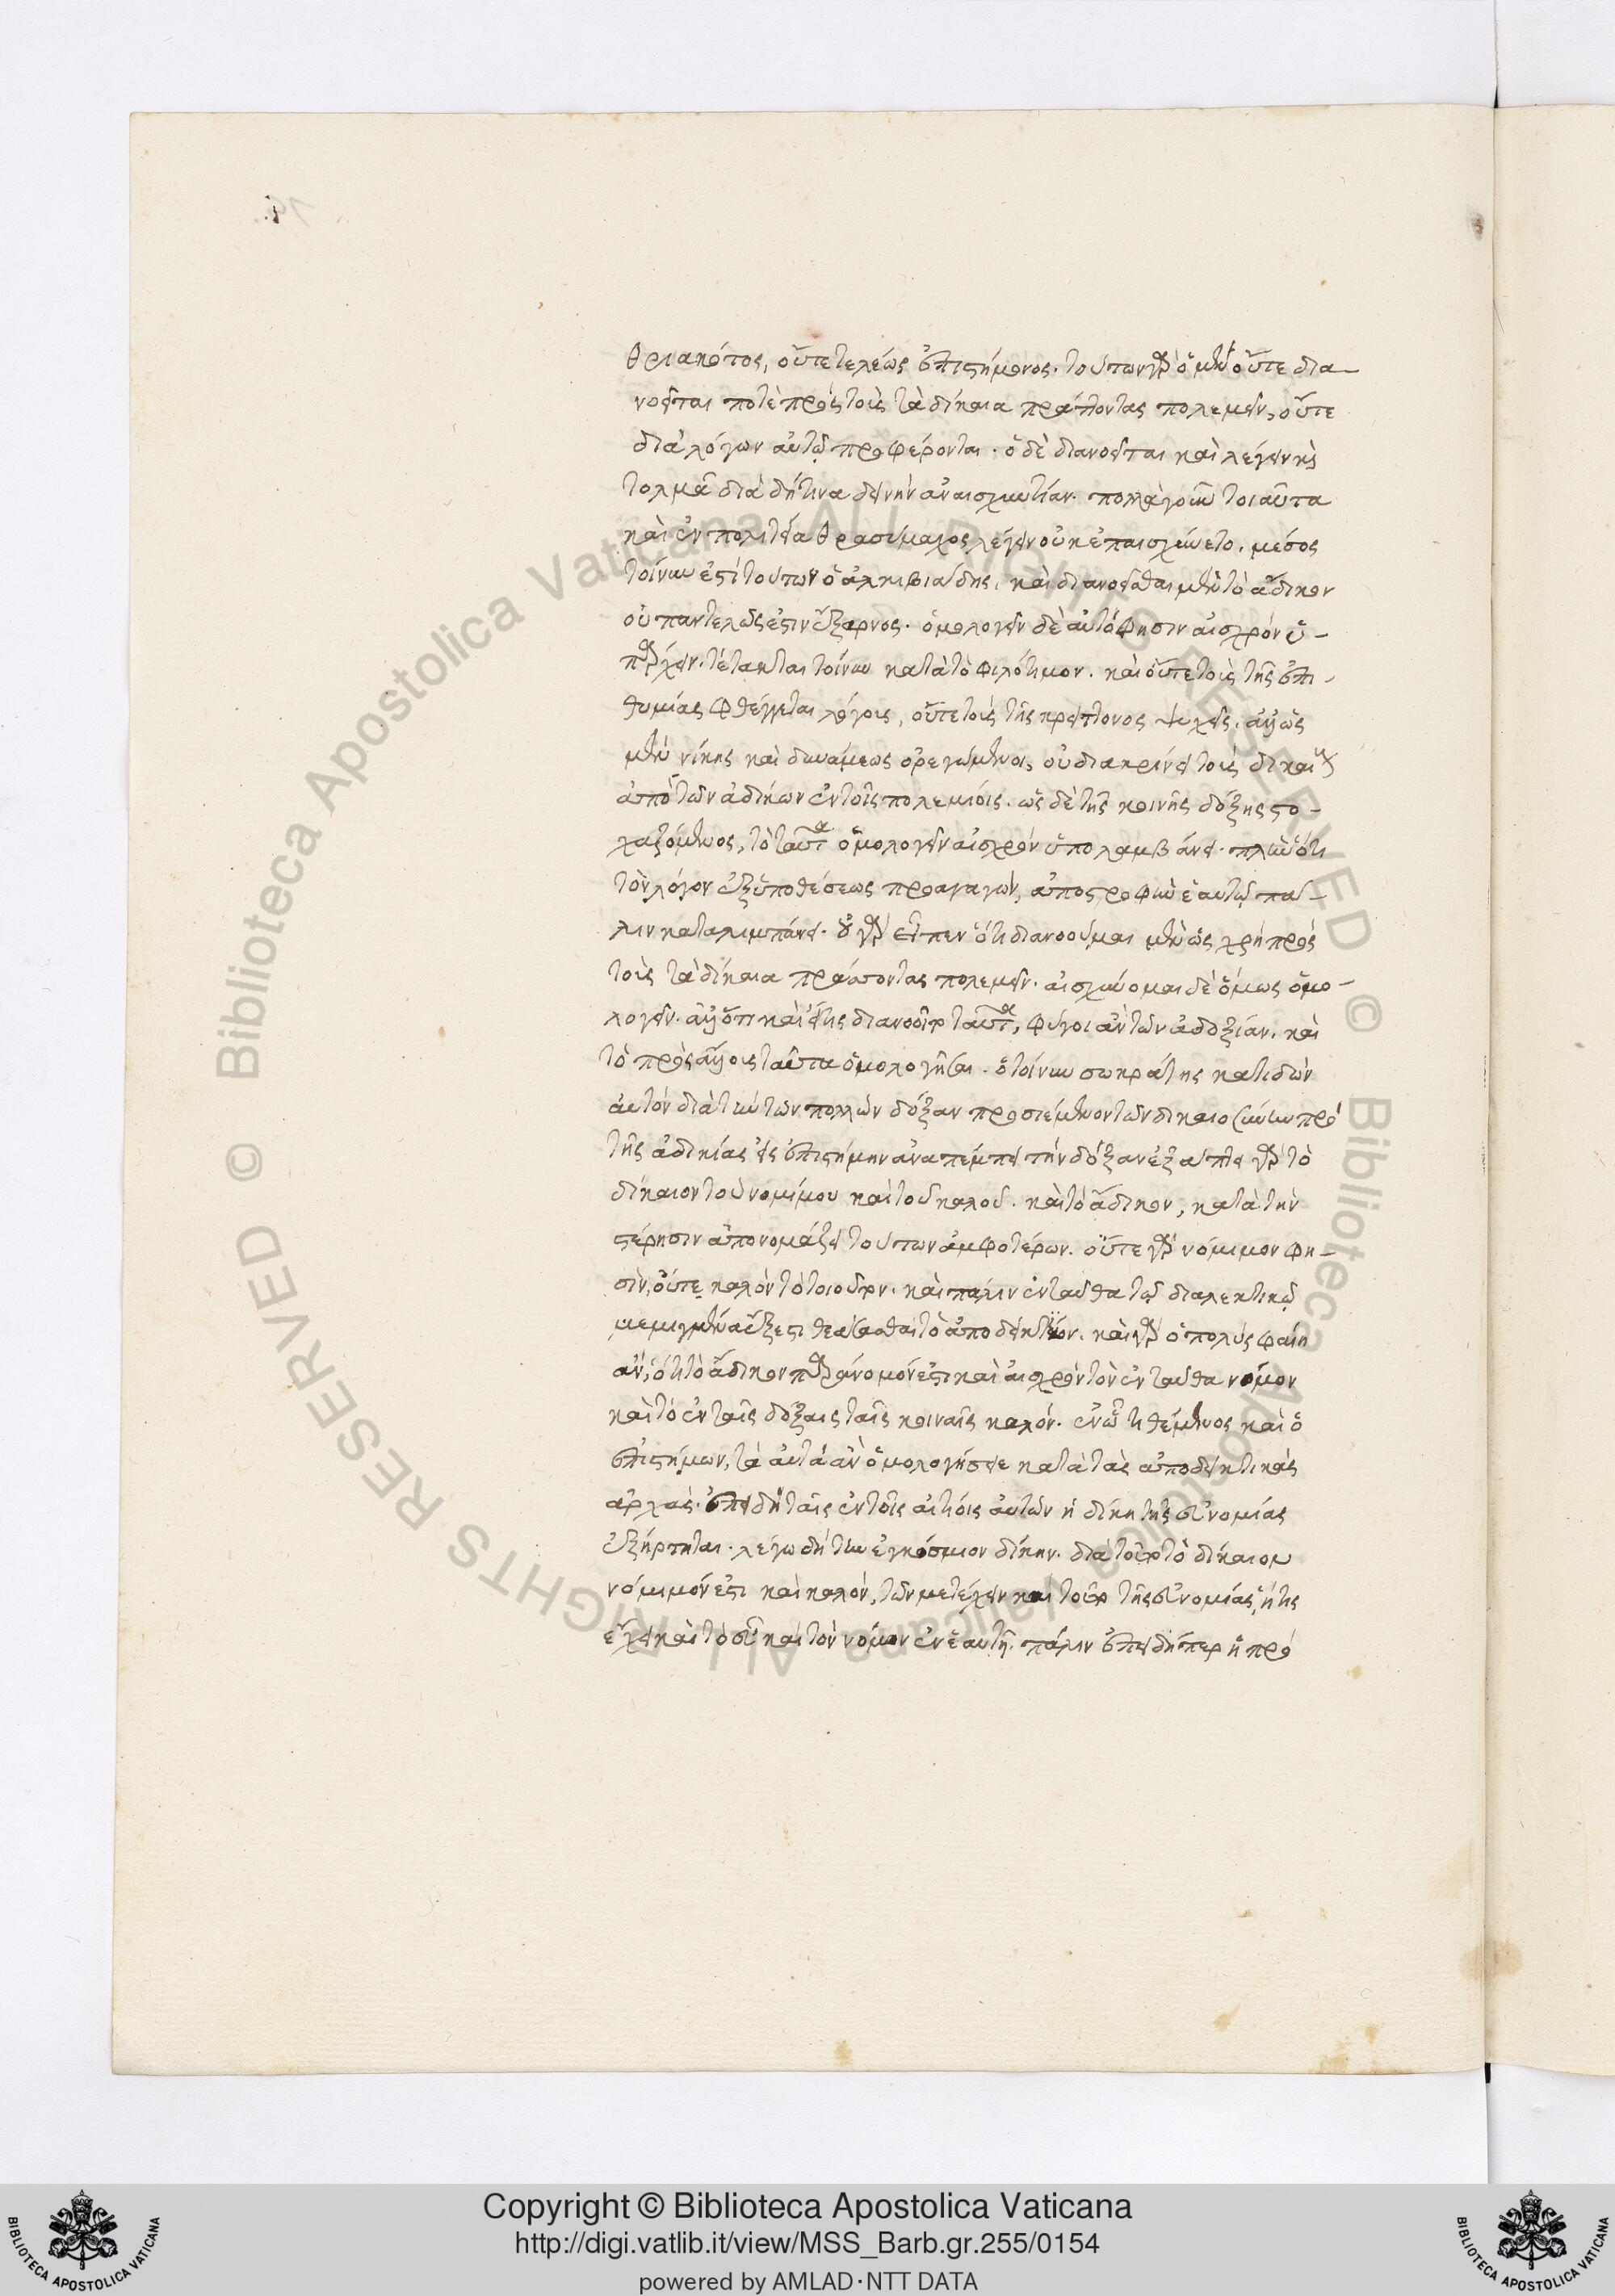 θριακότος, οὔτε τελέως ἐπιστήμονος. τούτων γὰρ ὁ μὲν οὔτε δια-
νοεῖται ποτὲ πρὸς τοὺς τὰ δίκαια πράττοντας πολεμεῖν, οὔτε
διὰ λόγων αὐτῷ προφέρονται. ὁ δὲ διανοεῖται καὶ λέγειν καὶ
τολμᾷ διὰ δή τινα δεινὴν ἀναισχυντίαν. πολλὰ γοῦν τοιαῦτα
καὶ ἐν πολιτείᾳ θρασύμαχος λέγειν οὐκ ἐπαισχύνετο. μέσος
τοίνυν ἐστὶ τούτων ὁ ἀλκιβιάδης. καὶ διανοεῖσθαι μὲν τὸ ἄδικον
οὐ παντελῶς ἐστιν ἔξαρνος. ὁμολογεῖν δὲ αὐτό φησιν αἰσχρὸν ὑ-
πάρχειν. τέτακται τοίνυν κατὰ τὸ φιλότιμον. καὶ οὔτε τοῖς τῆς ἐπι-
θυμίας φθέγγεται λόγοις, οὔτε τοῖς τῆς κρείττονος ψυχῆς. ἀλλ' ὡς
μὲν νίκης καὶ δυνάμεως ὀρεγόμενοι, οὐ διακρίνει τοὺς δικαίους
ἀπὸ τῶν ἀδίκων ἐν τοῖς πολεμίοις. ὡς δὲ τῆς κοινῆς δόξης στο-
χαζόμενος, τὸ ταῦτα ὁμολογεῖν αἰσχρὸν ὑπολαμβάνει. πλὴν ὅτι
τὸν λόγον ἐξ ὑποθέσεως προαγαγὼν, ἀποστροφὴν ἑαυτῷ πά-
λιν καταλιμπάνει. οὐ γὰρ εἶπεν ὅτι διανοοῦμαι μὲν ὡς χρὴ πρὸς
τοὺς τὰ δίκαια πράττοντας πολεμεῖν. αἰσχύνομαι δὲ ὅμως ὁμο-
λογεῖν. ἀλλ' ὅτι καὶ εἴ τις διανοοῖτο ταῦτα, φύγοι ἂν τὴν ἀδοξίαν. καὶ
τὸ πρὸς ἄλλους ταῦτα ὁμολογῆσαι. ὁ τοίνυν σωκράτης κατιδὼν
αὐτὸν διὰ τὴν τῶν πολλῶν δόξαν προσιέμενον τὴν δικαιοσύνην πρὸ
τῆς ἀδικίας εἰς ἐπιστήμην ἀναπέμπει τὴν δόξαν ἐξάπτει γὰρ τὸ
δίκαιον τοῦ νομίμου καὶ τοῦ καλοῦ. καὶ τὸ ἄδικον, κατὰ τὴν
στέρησιν ἀπονομάζει τούτων ἀμφοτέρων. οὔτε γὰρ νόμιμον φη-
σὶν, οὔτε καλὸν τὸ τοιοῦτον. καὶ πάλιν ἐνταῦθα τῷ διαλεκτικῷ
μεμιγμένα ἔξεστι θεάσασθαι τὸ ἀποδεικτικόν. καὶ γὰρ ὁ πολὺς φαίη
ἂν, ὅτι τὸ ἄδικον παράνομόν ἐστι καὶ αἰσχρὸν τὸν ἐνταῦθα νόμον
καὶ τὸ ἐν ταῖς δόξαις ταῖς κοιναῖς καλόν. ἐν ᾧ τιθέμενος καὶ ὁ
ἐπιστήμων, τὰ αὐτὰ ἂν ὁμολογήσειε κατὰ τὰς ἀποδεικτικὰς
ἀρχάς. ἐπειδὴ ταῖς ἐν τοῖς αἰτίοις αὐτῶν ἡ δίκη τῆς εὐνομίας
ἐξήρτηται. λέγω δὴ τὴν ἐγκόσμιον δίκην. διὰ τοῦτο τὸ δίκαιον
νόμιμόν ἐστι καὶ καλὸν, τῶν μετέχειν καὶ τοῦτο τῆς εὐνομίας, ἥτις
εἶχε καὶ τὸ εὖ καὶ τὸν νόμον ἐν ἑαυτῇ. πάλιν ἐπειδήπερ ἡ πρὸ
Copyright © Biblioteca Apostolica Vaticana
http://digi.vatlib.it/view/MSS_Barb.gr.255/0154
powered by AMLAD·NTT DATA